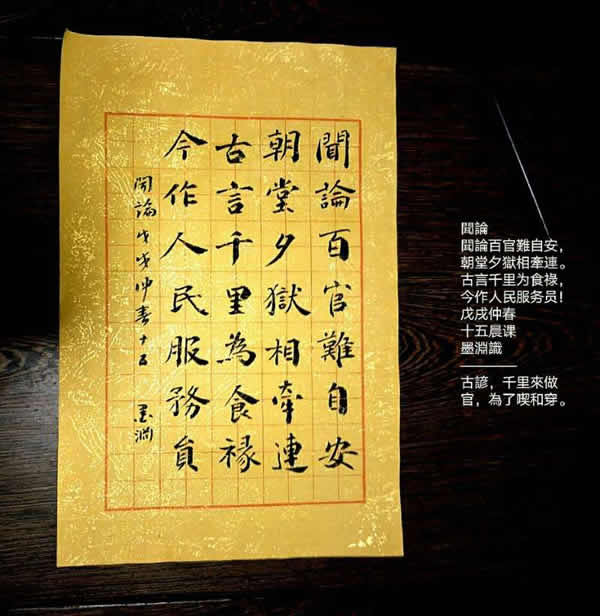 閒論百官難自安
朝堂夕獄相牽連
古言千里為食禄
今作人民服務員
閒論 戊戌仲春十五 墨渊
閒論
閒論百官難自安，
朝堂夕獄相牽連。
古言千里为食祿，
今作人民服务员！
戊戌仲春
十五晨课
墨淵識
古諺，千里來做
官，為了喫和穿。